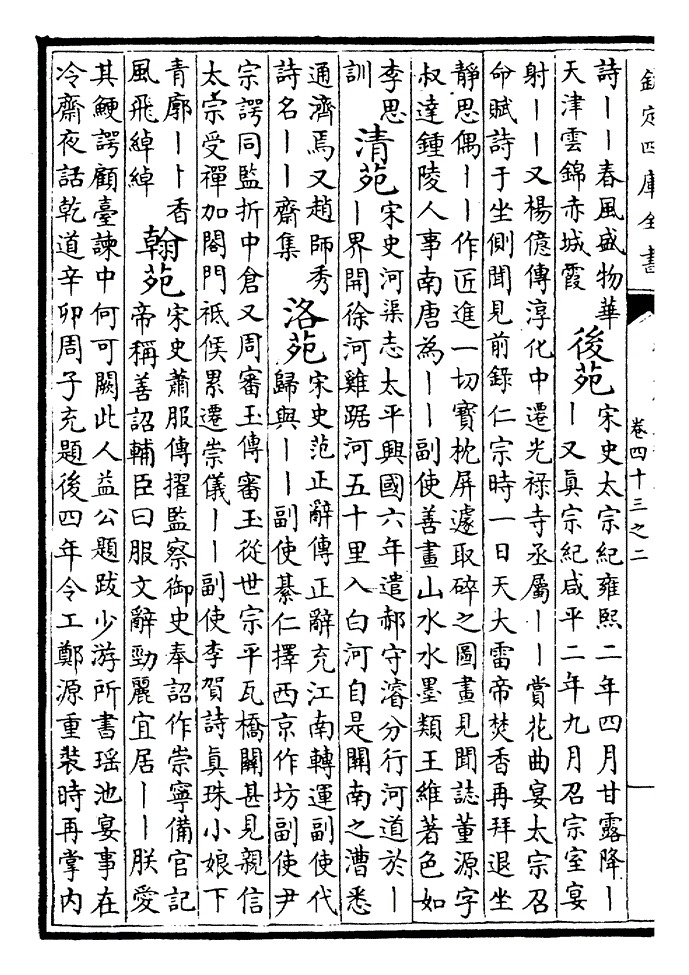 欽定四庫全書
卷四十三之二
詩丨丨春風盛物華
天津雲錦赤城霞
後苑
宋史太宗紀雍熙二年四月甘露降丨
丨又真宗紀咸平二年九月召宗室宴
射丨丨又楊億傳淳化中遷光禄寺丞屬丨丨賞花曲宴太宗召
命賦詩于坐側聞見前錄仁宗時一日天大雷帝焚香再拜退坐
靜思偶丨丨作匠進一切寶枕屏遽取碎之圖畫見聞誌董源字
叔達鍾陵人事南唐為丨丨副使善畫山水水墨類王維著色如
李思
訓
清苑
宋史河渠志太平興國六年遣郝守濬分行河道於丨
丨界開徐河雞踞河五十里入白河自是關南之漕悉
通濟焉又趙師秀
詩名丨丨齋集
洛苑
宋史范正辭傳正辭充江南轉運副使代
歸與丨丨副使綦仁擇西京作坊副使尹
宗諤同監折中倉又周審玉傳審玉從世宗平瓦橋關甚見親信
太宗受禪加閤門祗候累遷崇儀丨丨副使李賀詩真珠小娘下
青廓丨丨香
風飛綽綽
翰苑
宋史蕭服傳擢監察御史奉詔作崇寧備官記
帝稱善詔輔臣曰服文辭勁麗宜居丨丨朕愛
其鯁諤顧臺諫中何可闕此人益公題跋少游所書瑶池宴事在
冷齋夜話乾道辛卯周子充題後四年令工鄭源重裝時再掌内